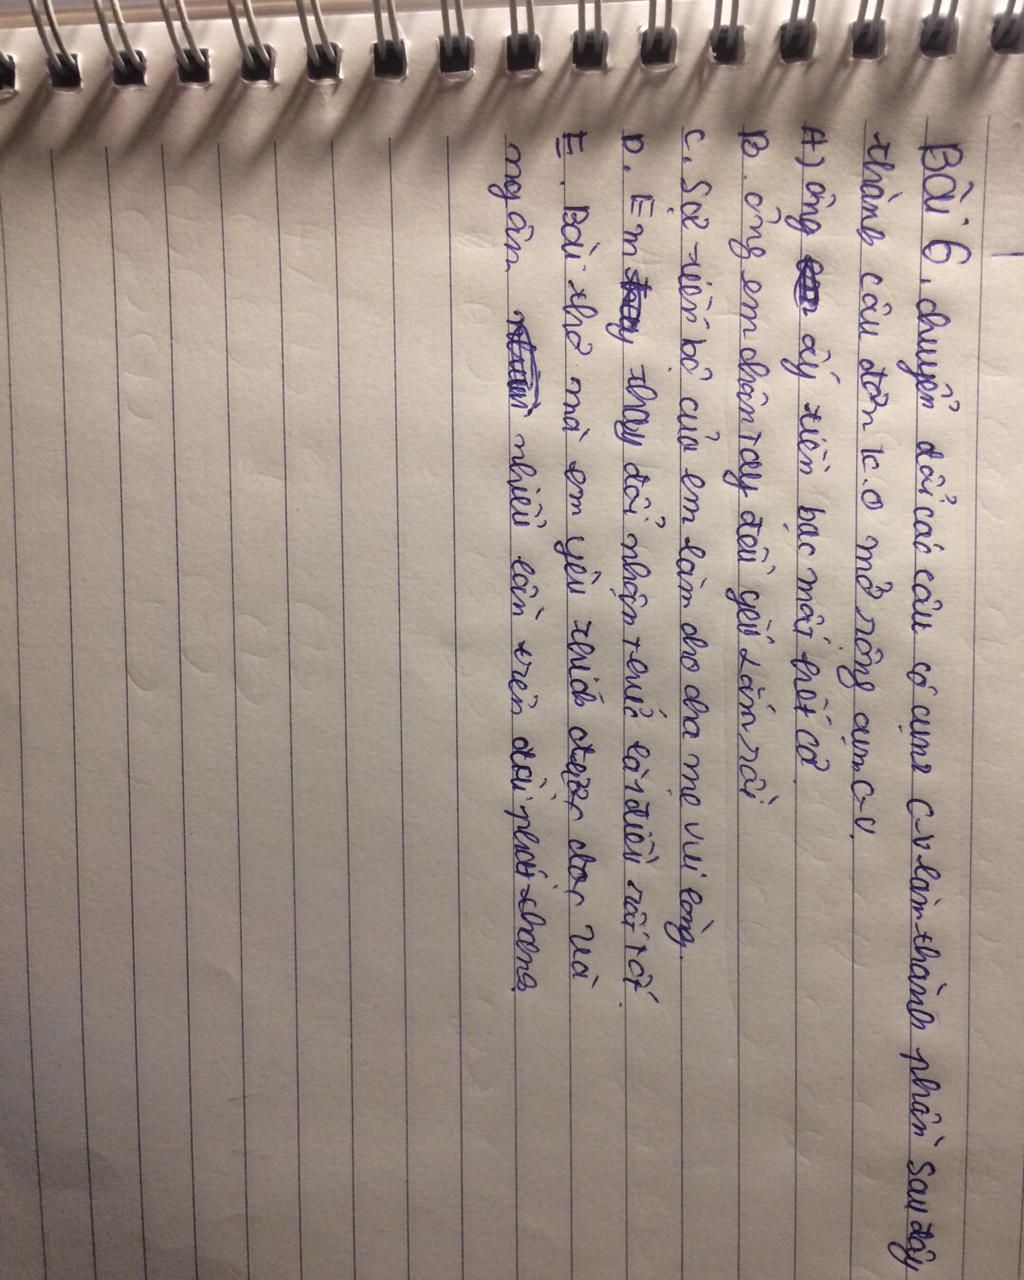 Bài 6. chuyển đổi các câu có cụm C-V làm thành phần sau đây
thành câu đơn k.o mở rộng cụm C-V.
A) ông ấy tiền bạc mất hết cả.
B. ông em chân tay đều yếu lắm rồi
C. Sự tiến bộ của em làm cho cha mẹ vui lòng.
D. Em thay đổi nhận thức là điều rất tốt.
E. Bài thơ mà em yêu thích được đọc và
ngâm nhiều lần trên đài phát thanh.